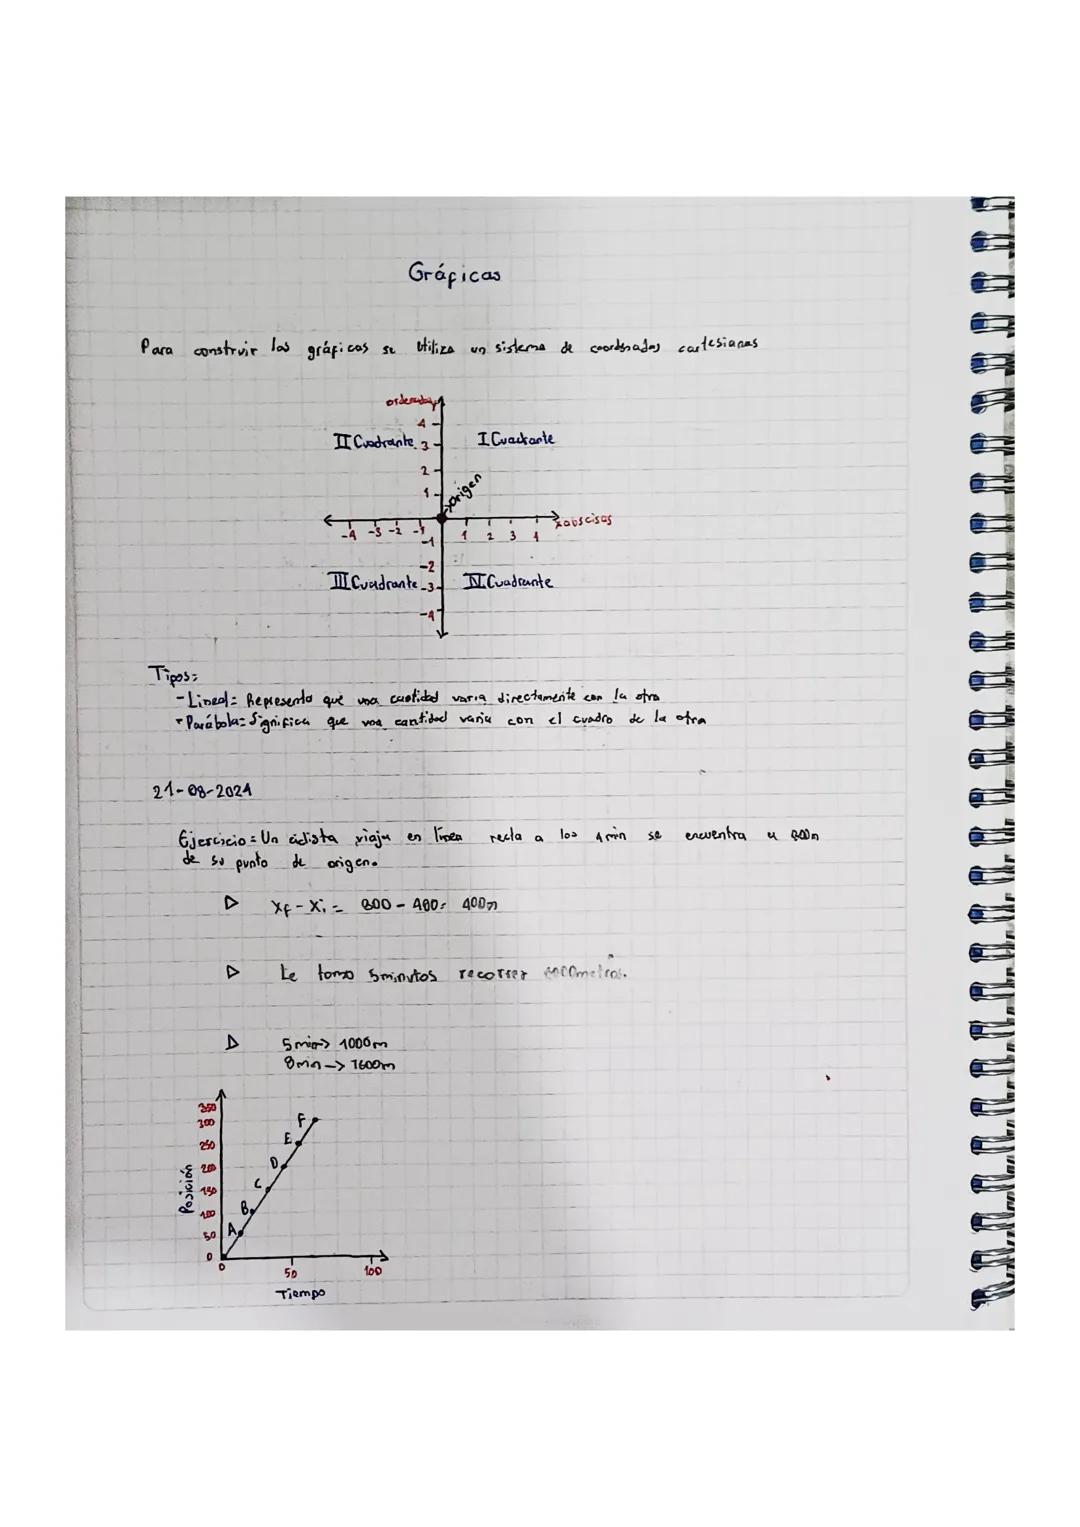 Gráficas
Para construir las gráficas se utiliza un sistema de coordenadas cartesianas
ordenaday
4
II Cuadrante 3 I Cuadrante
2
1 origen
-4 -3 -2 -1 1 2 3 4 x abscisas
-1
-2
III Cuadrante -3 IV Cuadrante
-4
Tipos:
- Lineal= Representa que una cantidad varia directamente con la otra
- Parábola= Significa que una cantidad varia con el cuadro de la otra
21-08-2024
Ejercicio= Un ciclista viaja en línea recta a los 4 min se encuentra a 800m
de su punto de origen.
▷ Xf - Xi = 800 - 400= 400m
▷ Le tomo 5minutos recorrer metros.
▷ 5 min-> 1000m
8min -> 1600m
350
300 F
250 E
200 D
150 C
100 B
50 A
0
0 50 100
Posición
Tiempo